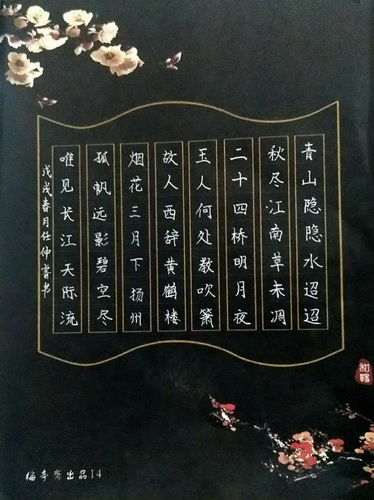 青山隐隐水迢迢
秋尽江南草未凋
二十四桥明月夜
玉人何处教吹箫
故人西辞黄鹤楼
烟花三月下扬州
孤帆远影碧空尽
唯见长江天际流
戊戌春月任仲睿书
出品14